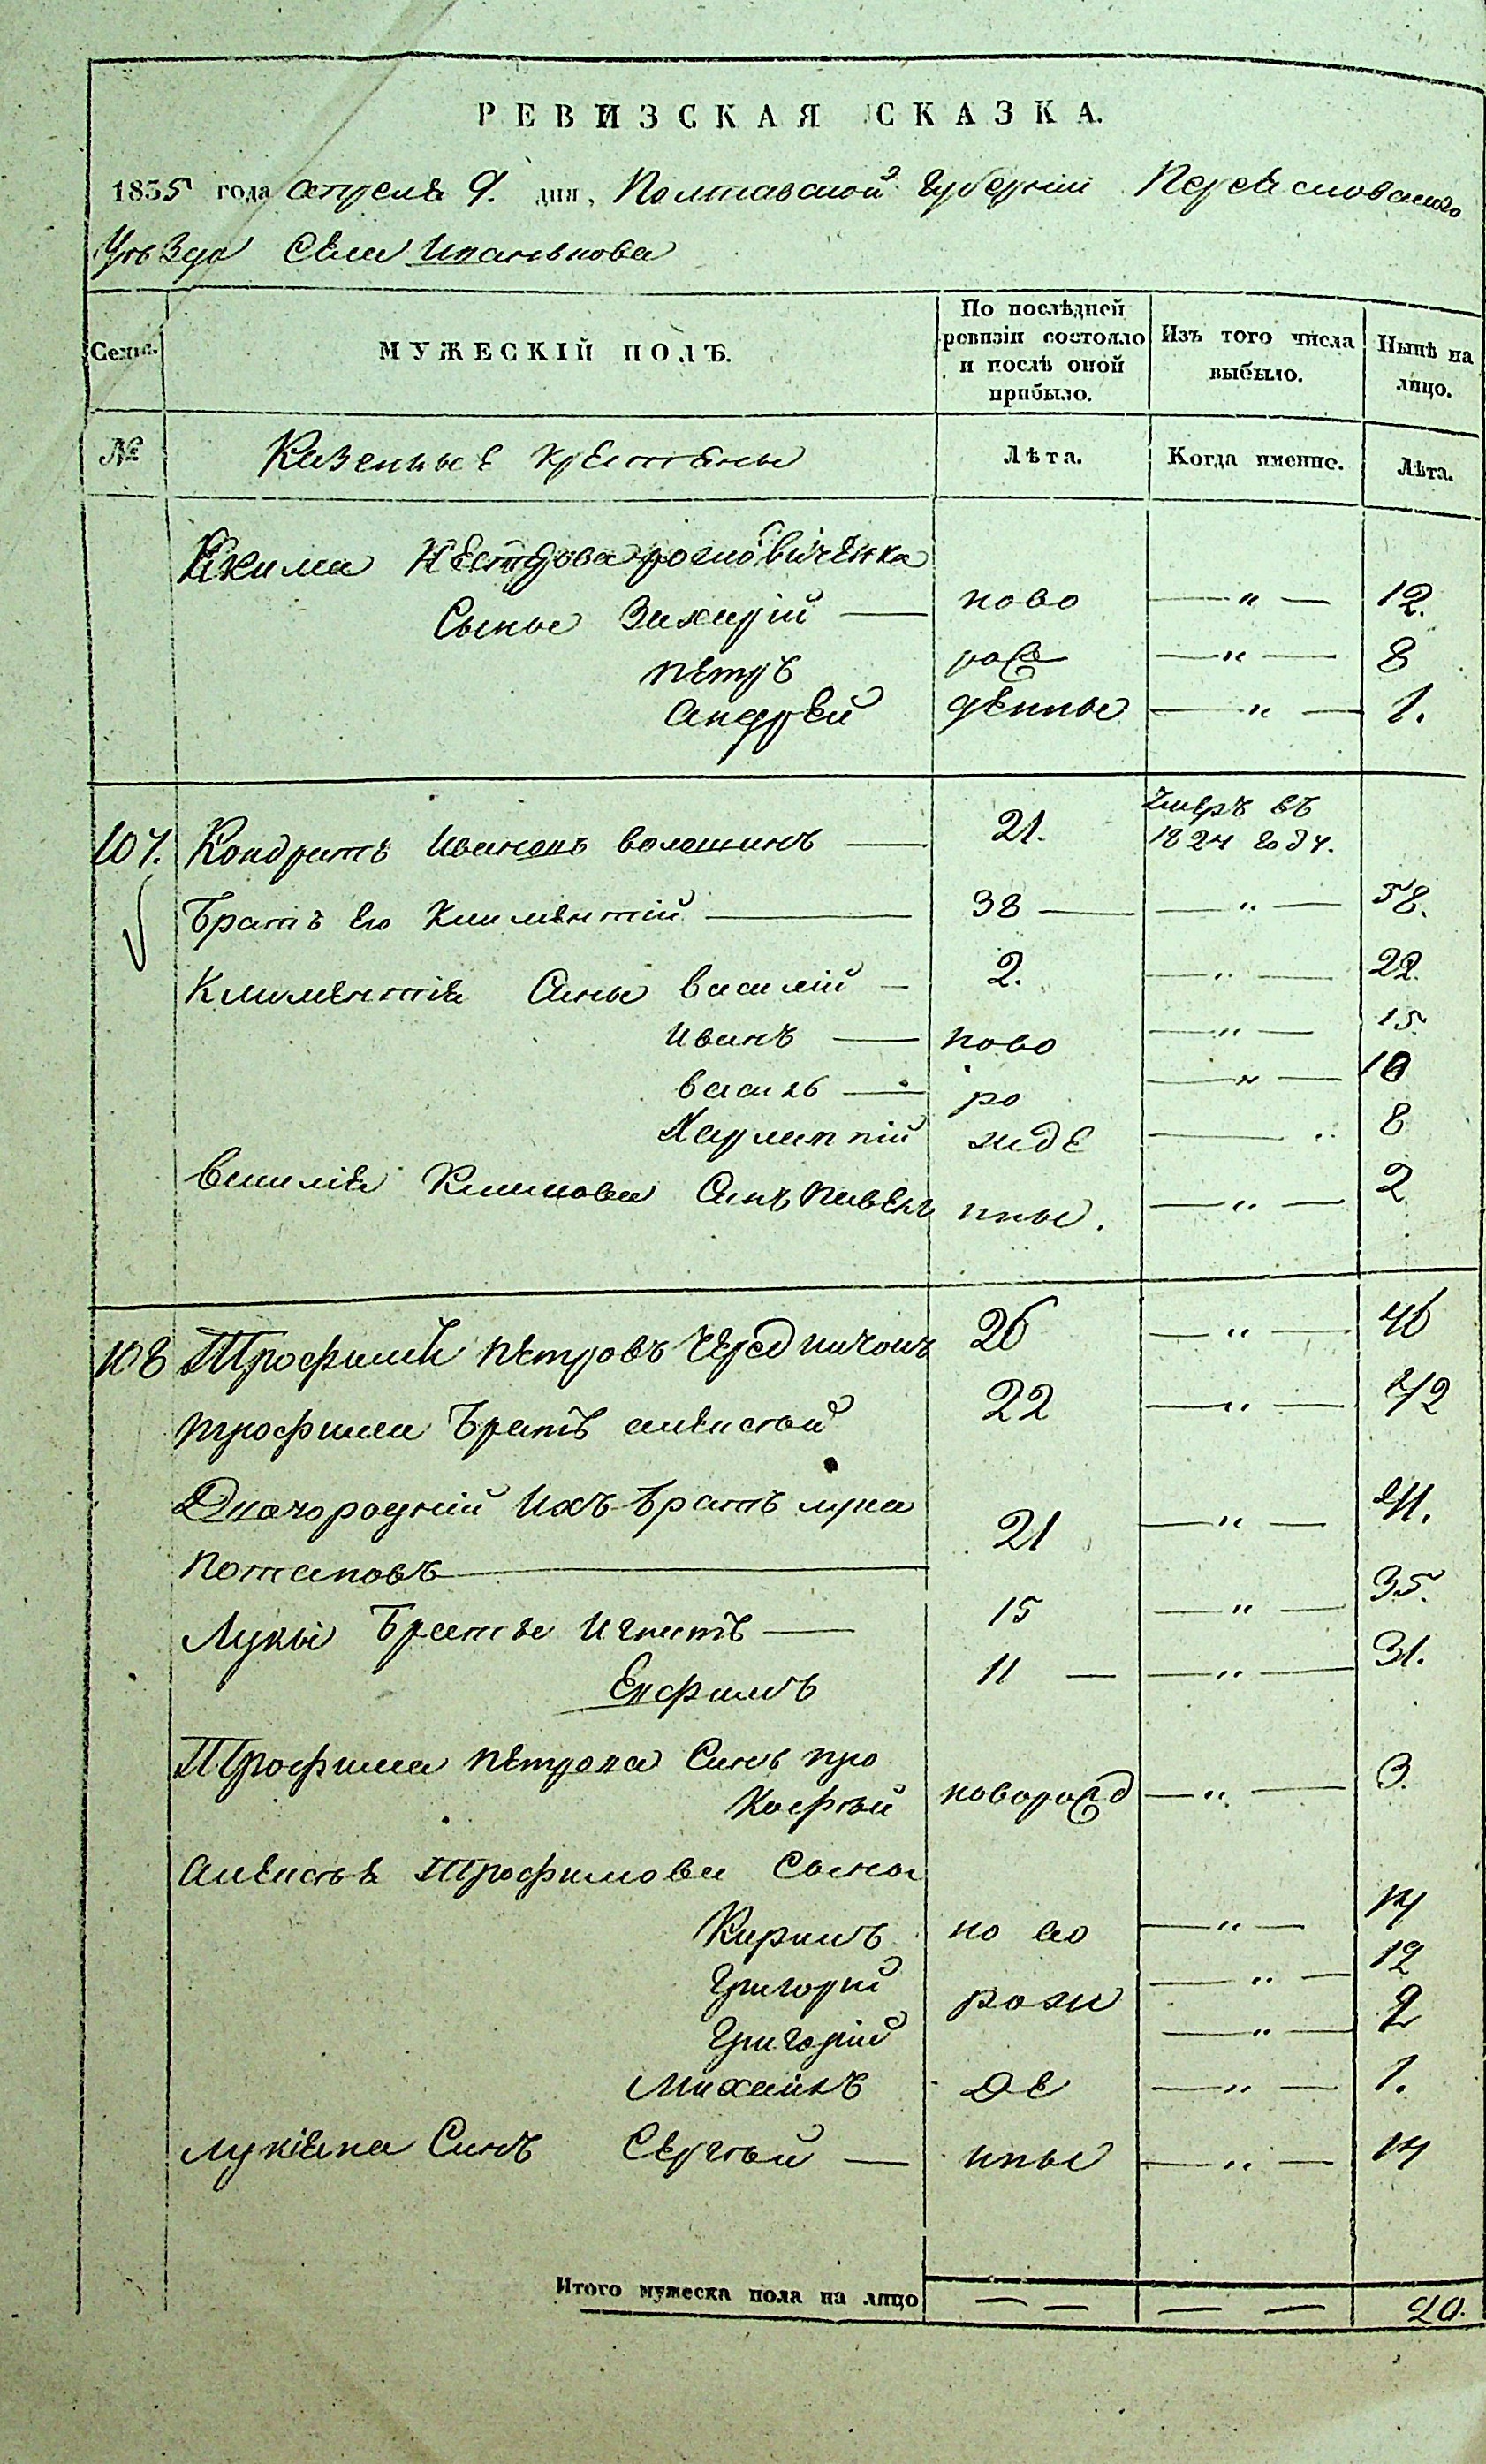 РЕВИЗСКАЯ СКАЗКА.
1835 года апреля 9. дня, Полтавской Губерніи Переяславского
Уѣзда Села Иванькова
Семьи. МУЖЕСКІЙ ПОЛЪ. По послѣдней ревизіи состояло и послѣ оной прибыло. Изъ того числа выбыло. Нынѣ на лицо.
№ Казенные крестяны Лѣта. Когда именно. Лѣта.
Якима Нестерова
Сыны Захарій — ново — " — 12.
Петръ рож — " — 8
Андрей денные — " — 1.
107. Кондратъ Ивановъ Волошинъ — 21. Умеръ въ 1824 году.
Братъ его Климентій — 38 — — " — 58.
Климентія Сины Василій — 2. — " — 22.
Иванъ — ново — " — 15.
Василь — ро — " — 10
Харлампій жде — " 8
Василія Климова Синъ Павелъ нные. — " — 2
108 Трофимъ Петровъ 26 — " — 46
Трофима Братъ алексей 22 — " — 42
Двоюродній Ихъ Братъ лука 21 — " — 41.
Потаповъ —
Луки Братья Игнатъ — 15 — " — 35.
Ефимъ 11 — — " — 31.
Трофима Петрова Синъ про
кофій новорожд — " — 3.
Алексея Трофимова Сыны
Кирилъ но во — " — 14
Григорій рож — " — 12
Григорій — " — 2
Михаилъ де — " — 1.
лукіяна Синъ Сергей — нные — " — 14
Итого мужеска пола на лицо — — — — 20.